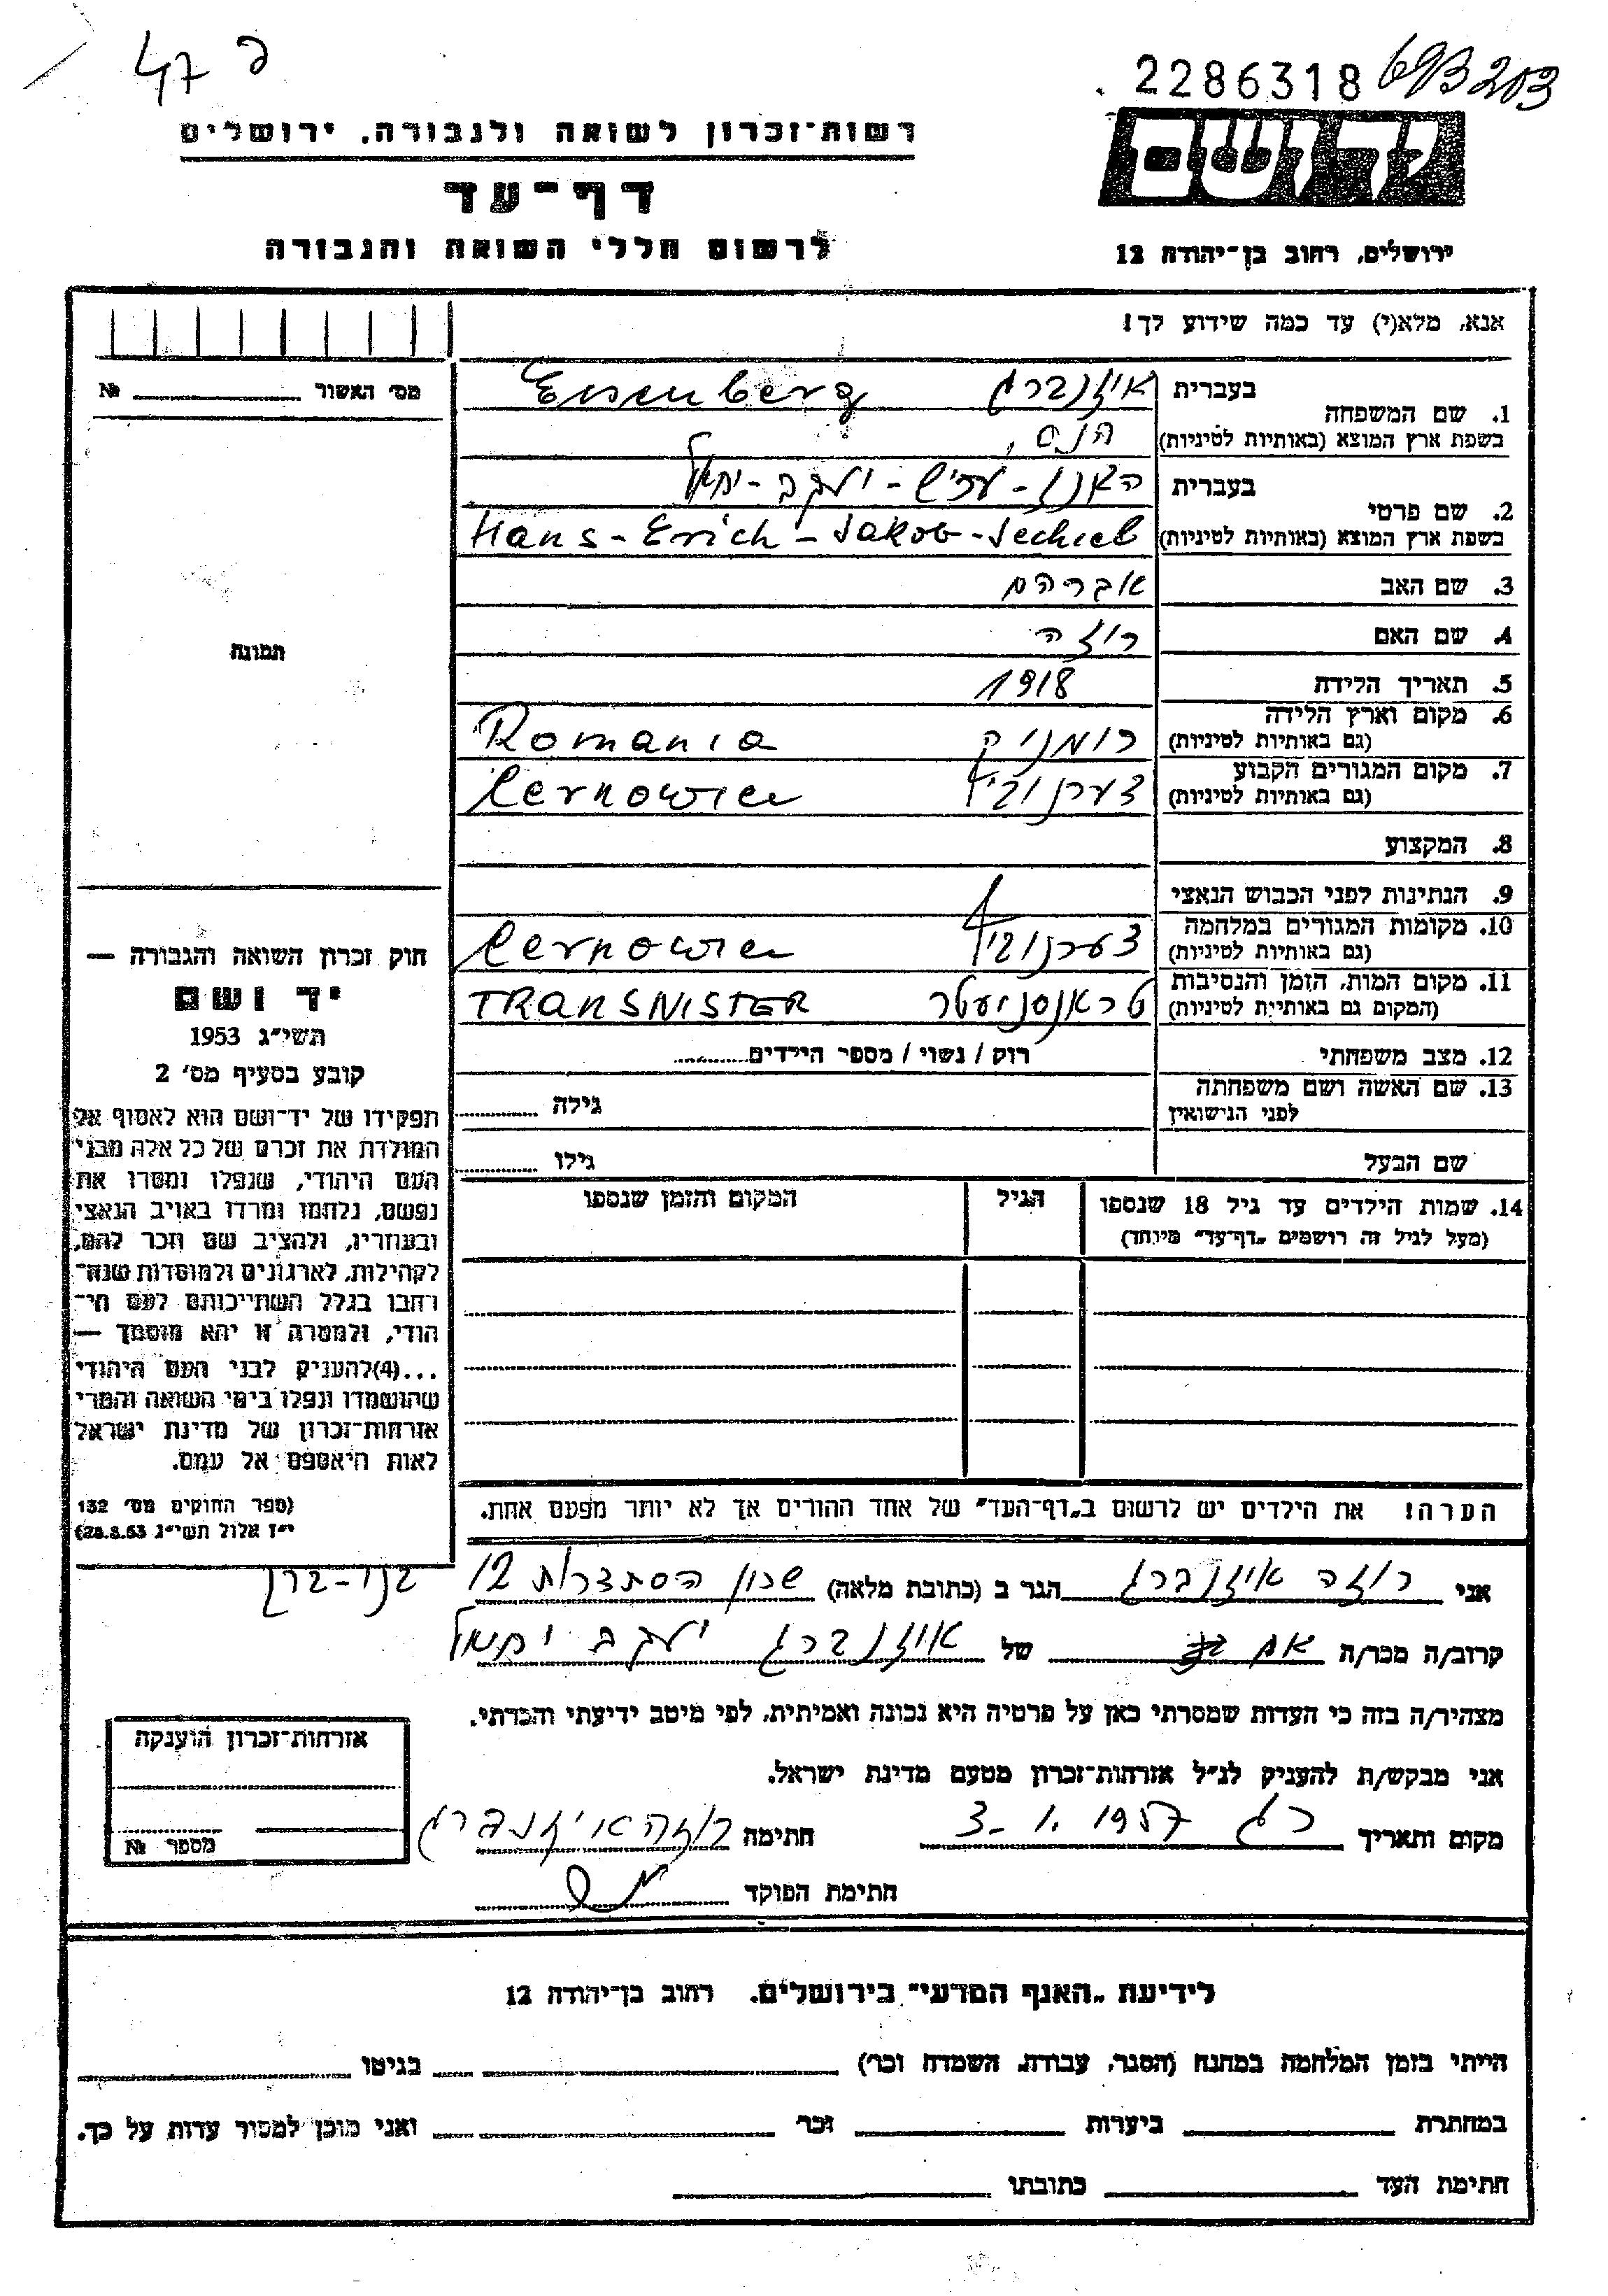 47 פ
2286318 693 203
רשות־זכרון לשואה ולגבורה, ירושלים
דף־עד
לרשום חללי השואה והגבורה
יד ושם
ירושלים, רחוב בן־יהודה 12
אנא, מלא(י) עד כמה שידוע לך!
מס׳ האשור № 
1. שם המשפחה
בעברית איזנברג Eisenberg
בשפת ארץ המוצא (באותיות לטיניות) הנס,
2. שם פרטי
בעברית האנז - עריש - יעקב - יחיאל
בשפת ארץ המוצא (באותיות לטיניות) Hans - Erich - Jakob - Jechiel
3. שם האב אברהם
4. שם האם רוזה
5. תאריך הלידה 1918
6. מקום וארץ הלידה
(גם באותיות לטיניות) רומניה Romania
7. מקום המגורים הקבוע
(גם באותיות לטיניות) צערנוביץ Cernowice
8. המקצוע
9. הנתינות לפני הכבוש הנאצי
10. מקומות המגורים במלחמה
(גם באותיות לטיניות) צערנוביץ Cernowice
11. מקום המות, הזמן והנסיבות
(המקום גם באותיות לטיניות) טראנסניעסטר TRANSNISTER
12. מצב משפחתי רוק / נשוי / מספר הילדים
13. שם האשה ושם משפחתה
לפני הנישואין גילה
שם הבעל גילו
14. שמות הילדים עד גיל 18 שנספו הגיל המקום והזמן שנספו
(מעל לגיל זה רושמים „דף־עד" מיוחד)
הערה! את הילדים יש לרשום ב„דף־העד" של אחד ההורים אך לא יותר מפעם אחת.
תמונה
חוק זכרון השואה והגבורה —
יד ושם
תשי״ג 1953
קובע בסעיף מס׳ 2
תפקידו של יד־ושם הוא לאסוף אל
המולדת את זכרם של כל אלה מבני
העם היהודי, שנפלו ומסרו את
נפשם, נלחמו ומרדו באויב הנאצי
ובעוזריו, ולהציב שם וזכר להם,
לקהילות, לארגונים ולמוסדות שנה־
רחבו בגלל השתייכותם לעם הי־
הודי, ולמטרה זו יהא מוסמך —
...(4)להעניק לבני העם היהודי
שהושמדו ונפלו בימי השואה והמרי
אזרחות־זכרון של מדינת ישראל
לאות היאספם אל עמם.
(ספר החוקים מס׳ 132
י״ז אלול תשי״ג 28.8.53)
אני רוזה איזנברג הגר ב (כתובת מלאה) שכון הסתדרות 12 בני-ברק
קרוב/ה מכר/ה אם של איזנברג יעקב יחיאל
מצהיר/ה בזה כי העדות שמסרתי כאן על פרטיה היא נכונה ואמיתית, לפי מיטב ידיעתי והכרתי.
אני מבקש/ת להעניק לנ״ל אזרחות־זכרון מטעם מדינת ישראל.
מקום ותאריך רג 3.1.1957 חתימה רוזה איזנברג
חתימת הפוקד
אזרחות־זכרון הוענקה
מספר №
לידיעת „האגף המדעי" בירושלים. רחוב בן־יהודה 12
הייתי בזמן המלחמה במחנה (הסגר, עבודה, השמדה וכר) בגיטו
במחתרת ביערות וכר ואני מוכן למסור עדות על כך.
חתימת העד כתובתו